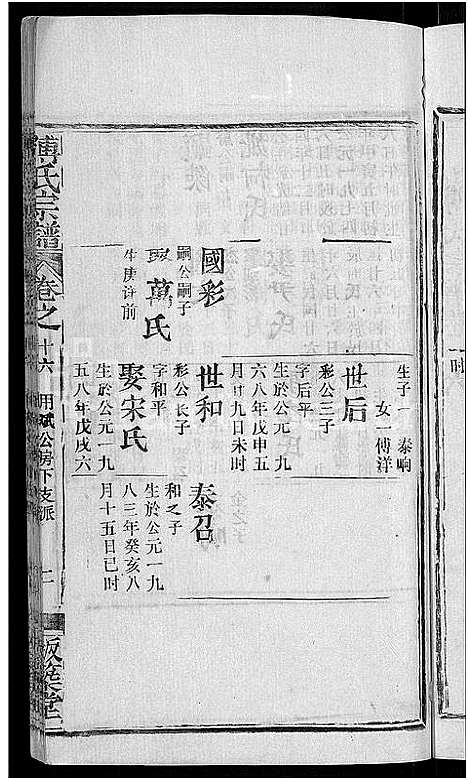 生子一 泰响
女一傅洋
世后
彩公三子
字后平
生於公元一九
六八年戊申五
月廿九日未时
國彩
嗣公嗣子
萬氏
生庚谱前
世和
彩公长子
字和平
娶宋氏
生於公元一九
五八年戊戌六
泰召
和之子
生於公元一九
八三年癸亥八
月十五日巳时
傅氏宗譜
卷之十六 用斌公房下支派
版築堂
时